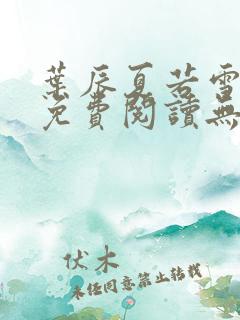 葉辰夏若雪
免費閱讀無
伏木
未經同意禁止轉載